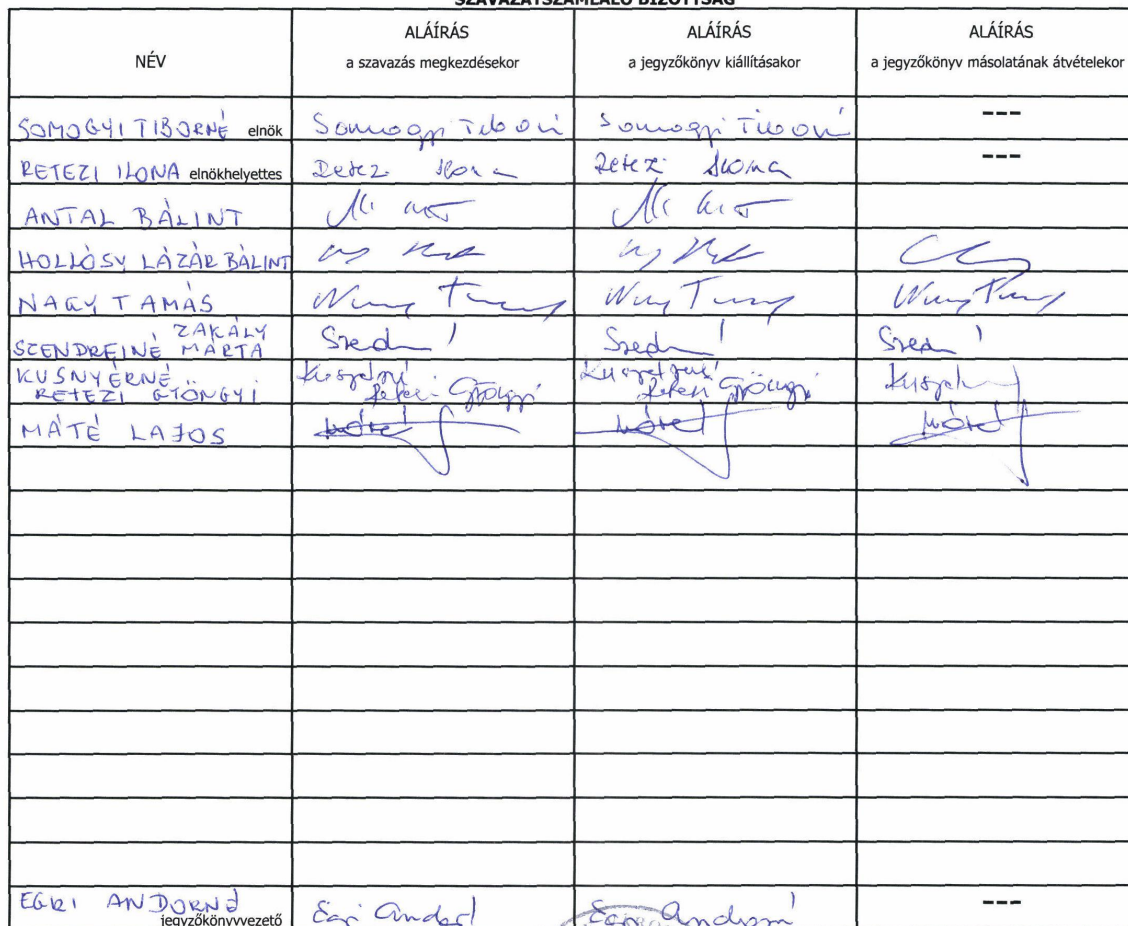 SZAVAZATSZÁMLÁLÓ BIZOTTSÁG
NÉV
ALÁÍRÁS
a szavazás megkezdésekor
ALÁÍRÁS
a jegyzőkönyv kiállításakor
ALÁÍRÁS
a jegyzőkönyv másolatának átvételekor
SOMOGYI TIBORNÉ elnök Somogyi Tiborné Somogyi Tiborné ---
RETEZI ILONA elnökhelyettes Retezi Ilona Retezi Ilona ---
ANTAL BÁLINT
HOLLÓSY LÁZÁR BÁLINT
NAGY TAMÁS Nagy Tamás Nagy Tamás Nagy Tamás
ZAKÁLY
SZENDREINÉ MÁRTA
KUSNYÉRNÉ
RETEZI GYÖNGYI
MÁTÉ LAJOS Máté Máté Máté
EGRI ANDORNÉ
jegyzőkönyvvezető Egri Andorné Egri Andorné ---